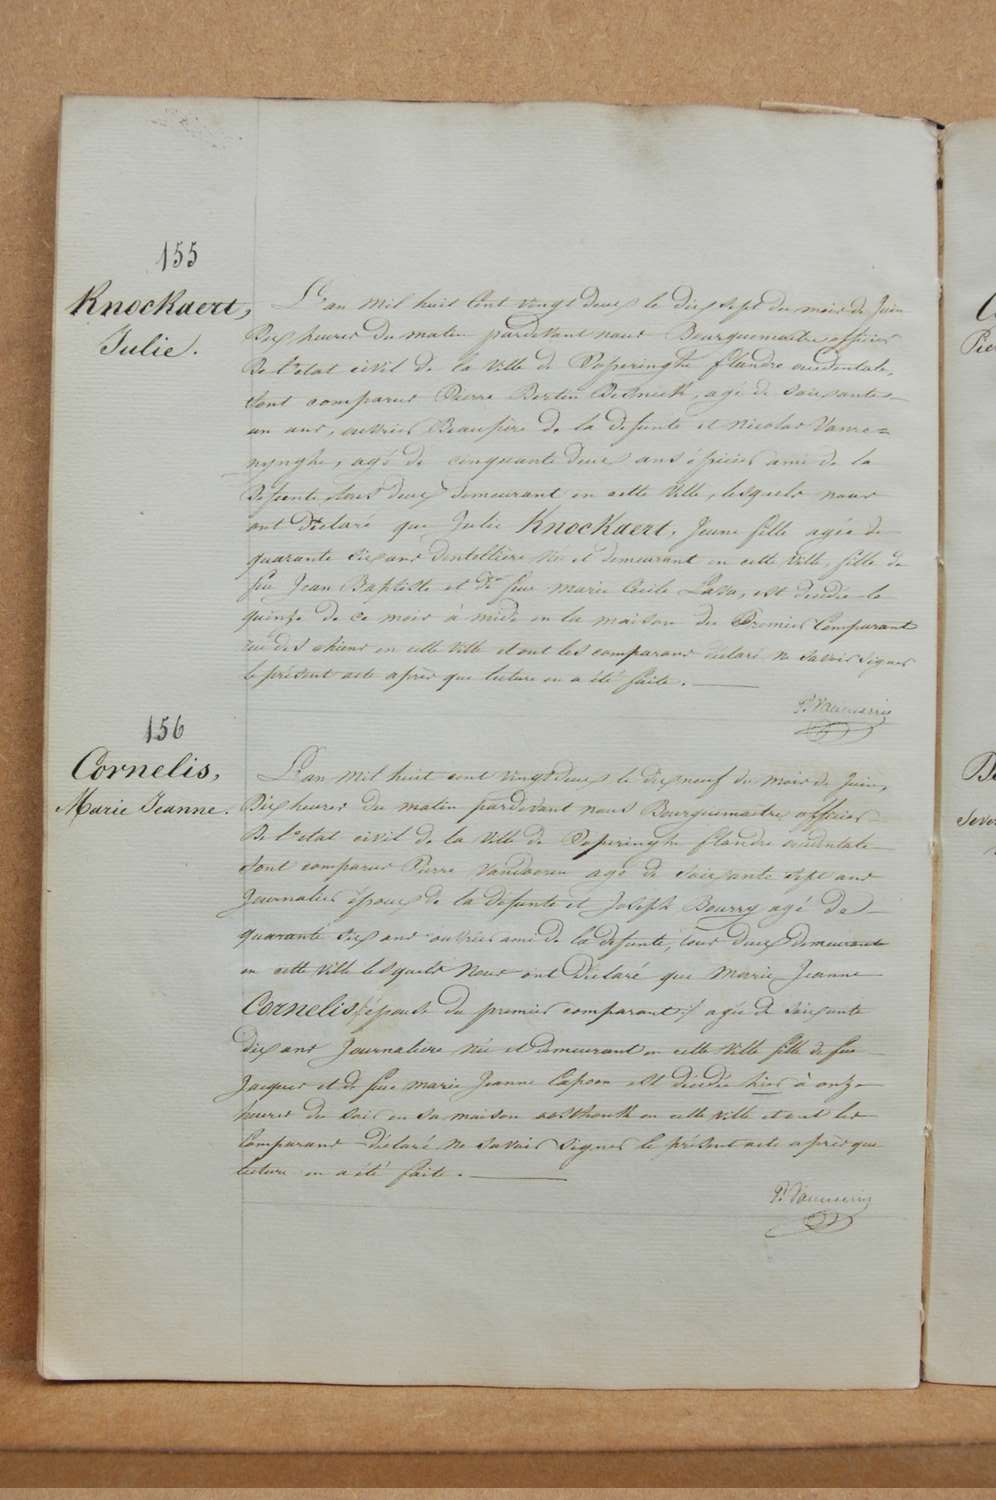 155
Knockaert,
Julie.
L'an mil huit cent vingt deux le dix sept du mois de Juin
Dix heures du matin pardevant nous Bourguemaitre officier
De l'etat civil de la ville de Poperinghe flandre occidentale,
sont comparus Pierre Bertin agé de soixante
un ans, ouvrier Beaupère de la defunte et Nicolas Vanre=
nynghe, agé de cinquante deux ans épicier ami de la
defunte tous deux demeurant en cette ville, lesquels nous
ont déclaré que Julie Knockaert, jeune fille agée de
quarante six ans dentelliere née et demeurant en cette ville, fille de
feu Jean Baptiste et de feue marie Cecile est décédée le
quinze de ce mois à midi en la maison du Premier Comparant
rue des chiens en cette ville et ont les comparans déclaré ne savoir signer
le présent acte après que lecture en a été faite.
156
Cornelis,
Marie Jeanne.
L'an mil huit cent vingt deux le dix neuf du mois de Juin,
Dix heures du matin pardevant nous Bourguemaitre officier
De l'etat civil de la ville de Poperinghe flandre occidentale
sont comparus Pierre agé de soixante sept ans
Journalier époux de la défunte et Joseph Bourry agé de
quarante six ans ouvrier ami de la defunte, tous deux demeurants
en cette ville lesquels nous ont déclaré que Marie Jeanne
Cornelis /:épouse du premier comparant:/ agée de soixante
dix ans Journaliere née et demeurant en cette ville fille de feu
Jacques et de feue marie Jeanne Capoen est décédée hier à onze
heures du soir en sa maison en cette ville et ont les
Comparans déclaré ne savoir signer le présent acte apres que
lecture en a été faite.